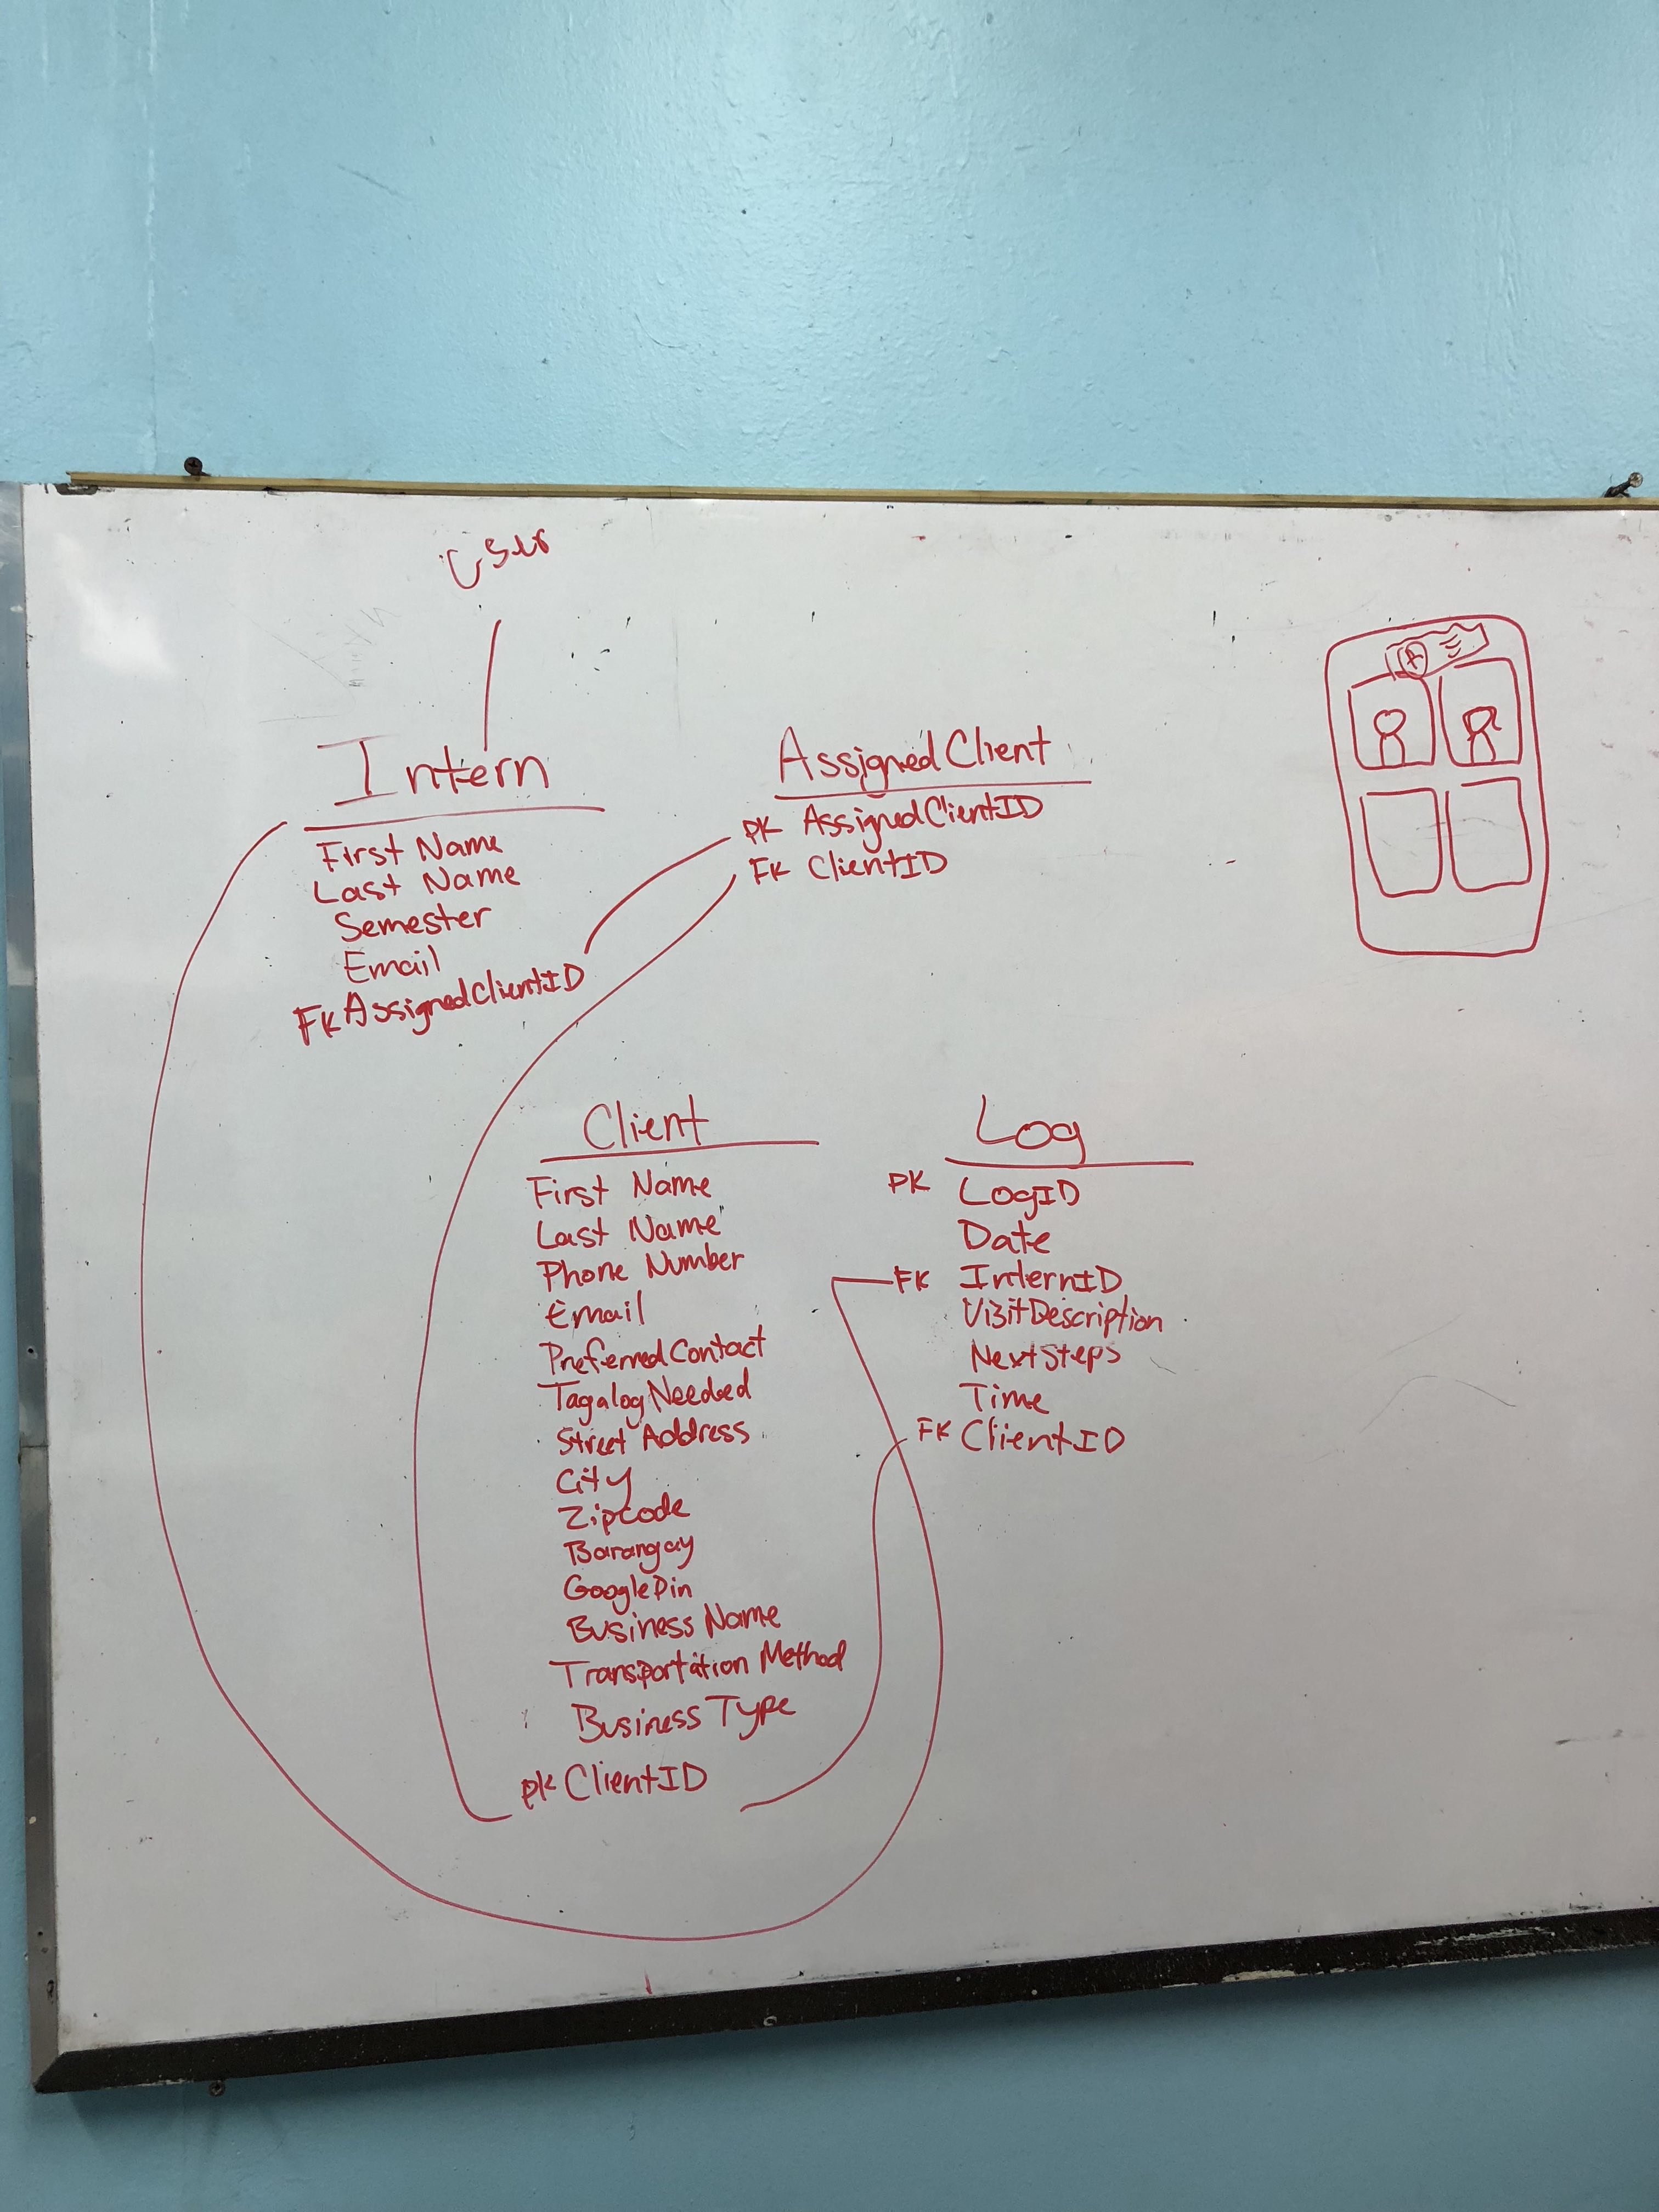 User
Intern
First Name
Last Name
Semester
Email
FK AssignedClientID
AssignedClient
PK AssignedClientID
FK ClientID
Client
First Name
Last Name
Phone Number
Email
PreferredContact
TagalogNeeded
Street Address
City
Zipcode
Barangay
GooglePin
Business Name
Transportation Method
Business Type
PK ClientID
Log
PK LogID
Date
FK InternID
VisitDescription
NextSteps
Time
FK ClientID